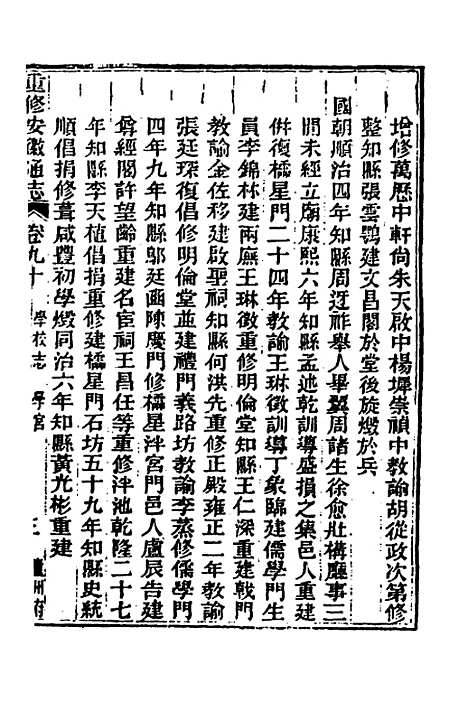 增修萬歷中軒尙朱天啟中楊墀崇禎中教諭胡從政次第修
整知縣張雲鶚建文昌閣於堂後旋燬於兵
國朝順治四年知縣周迓祚舉人畢翼周諸生徐愈壯構廳事三
間未經立廟康熙六年知縣孟述乾訓導盛損之集邑人重建
併復櫺星門二十四年教諭王琳徵訓導丁象臨建儒學門生
員李錦林建兩廡王琳徵重修明倫堂知縣王仁深重建戟門
教諭金佐移建啟聖祠知縣何洪先重修正殿雍正二年教諭
張廷琛復倡修明倫堂並建禮門義路坊教諭李蒸修儒學門
四年九年知縣鄔廷函陳慶門修櫺星泮宮門邑人盧辰告建
尊經閣許望齡重建名宦祠王昌任等重修泮池乾隆二十七
年知縣李天植倡捐重修建櫺星門石坊五十九年知縣史統
順倡捐修葺咸豐初學燬同治六年知縣黃光彬重建
重修安徽通志
卷九十
學校志
學宮
三
州府